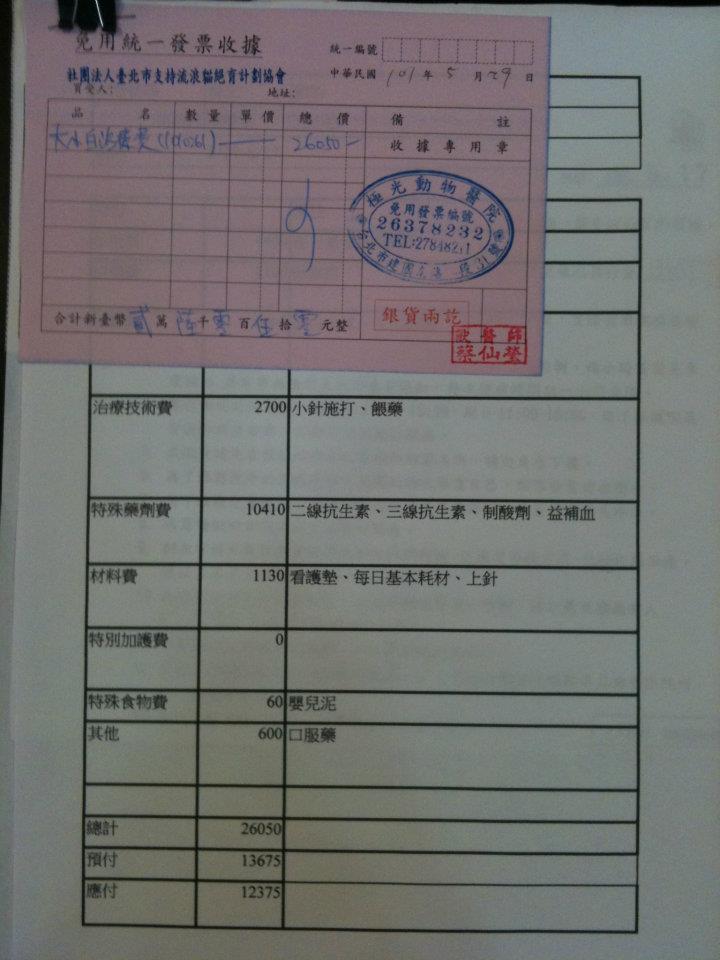 免用統一發票收據
統一編號
社團法人臺北市支持流浪貓絕育計劃協會
中華民國 101 年 5 月 29 日
買受人:
地址:
品名 數量 單價 總價 備註
26050
收據專用章
極光動物醫院
免用發票編號
26378232
合計新臺幣 貳 萬 陸 千 零 百 伍 拾 零 元整
銀貨兩訖
獸醫師
蔡仙瑩
治療技術費 2700 小針施打、餵藥
特殊藥劑費 10410 二線抗生素、三線抗生素、制酸劑、益補血
材料費 1130 看護墊、每日基本耗材、上針
特別加護費 0
特殊食物費 60 嬰兒泥
其他 600 口服藥
總計 26050
預付 13675
應付 12375